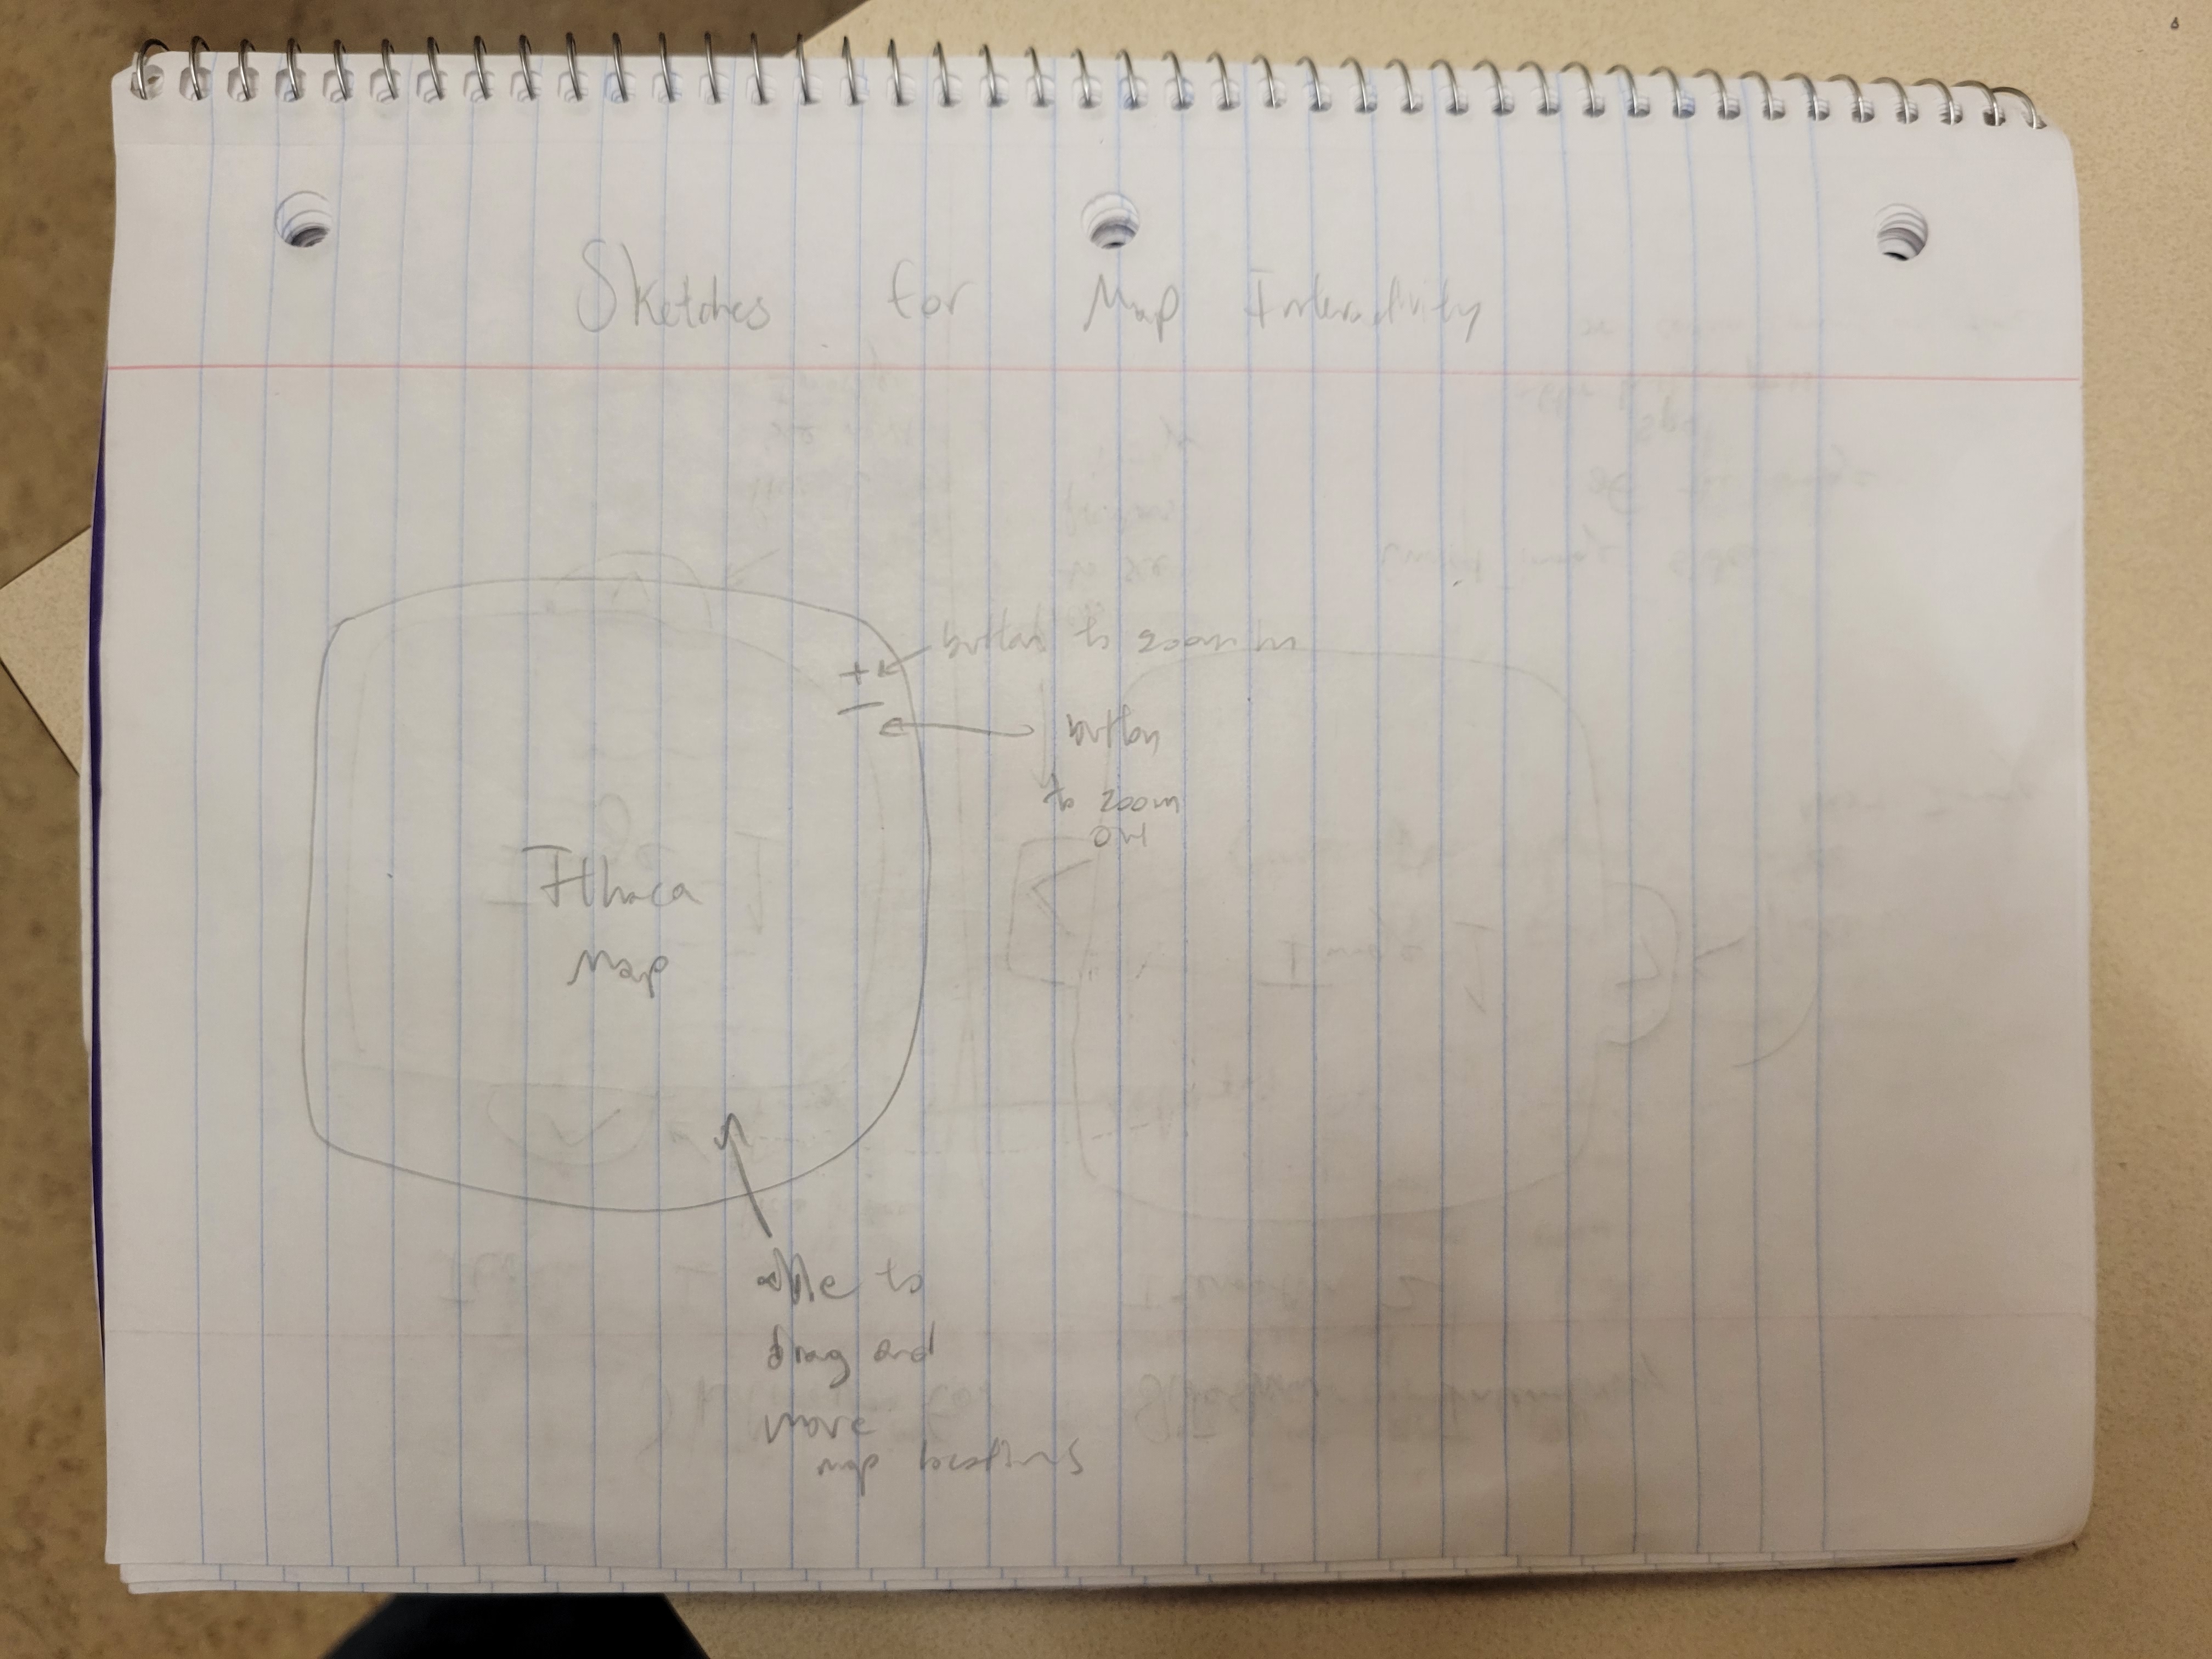 Sketches for Map Interactivity
button to zoom in
+
-
button
to zoom
out
Ithaca
Map
able to
drag and
move
map locations